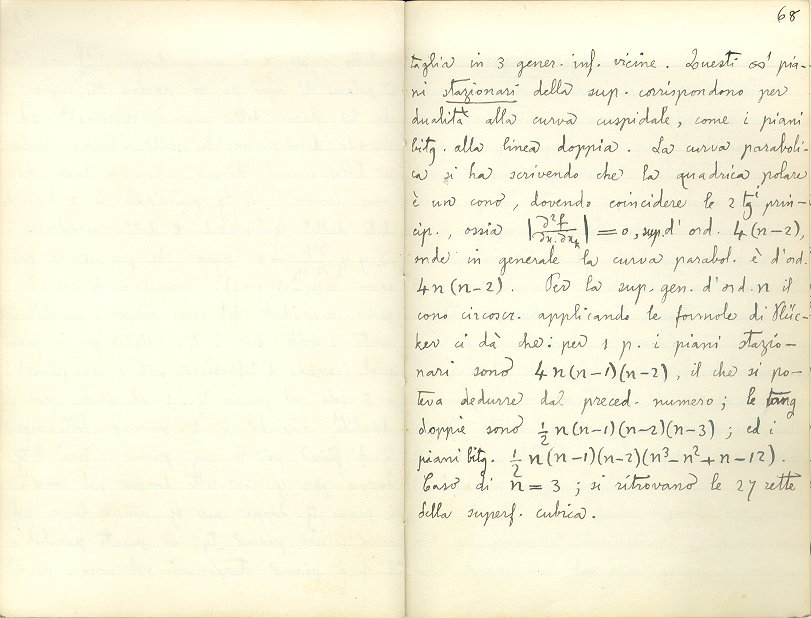 68
taglia in 3 gener. inf. vicine. Questi ∞¹ pia-
ni stazionari della sup. corrispondono per
dualità alla curva cuspidale, come i piani
bitg. alla linea doppia. La curva paraboli-
ca si ha scrivendo che la quadrica polare
è un cono, dovendo coincidere le 2 tgⁱ prin-
cip., ossia |∂²f/∂xᵢ∂xₖ| = 0, sup. d'ord. 4(n-2),
onde in generale la curva parabol. è d'ord.
4n(n-2). Per la sup. gen. d'ord. n il
cono circoscr. applicando le formole di Plüc-
ker ci dà che: per 1 p. i piani stazio-
nari sono 4n(n-1)(n-2), il che si po-
teva dedurre dal preced. numero; le tang
doppie sono ½n(n-1)(n-2)(n-3); ed i
piani bitg. ½n(n-1)(n-2)(n³-n²+n-12).
Caso di n=3; si ritrovano le 27 rette
della superf. cubica.